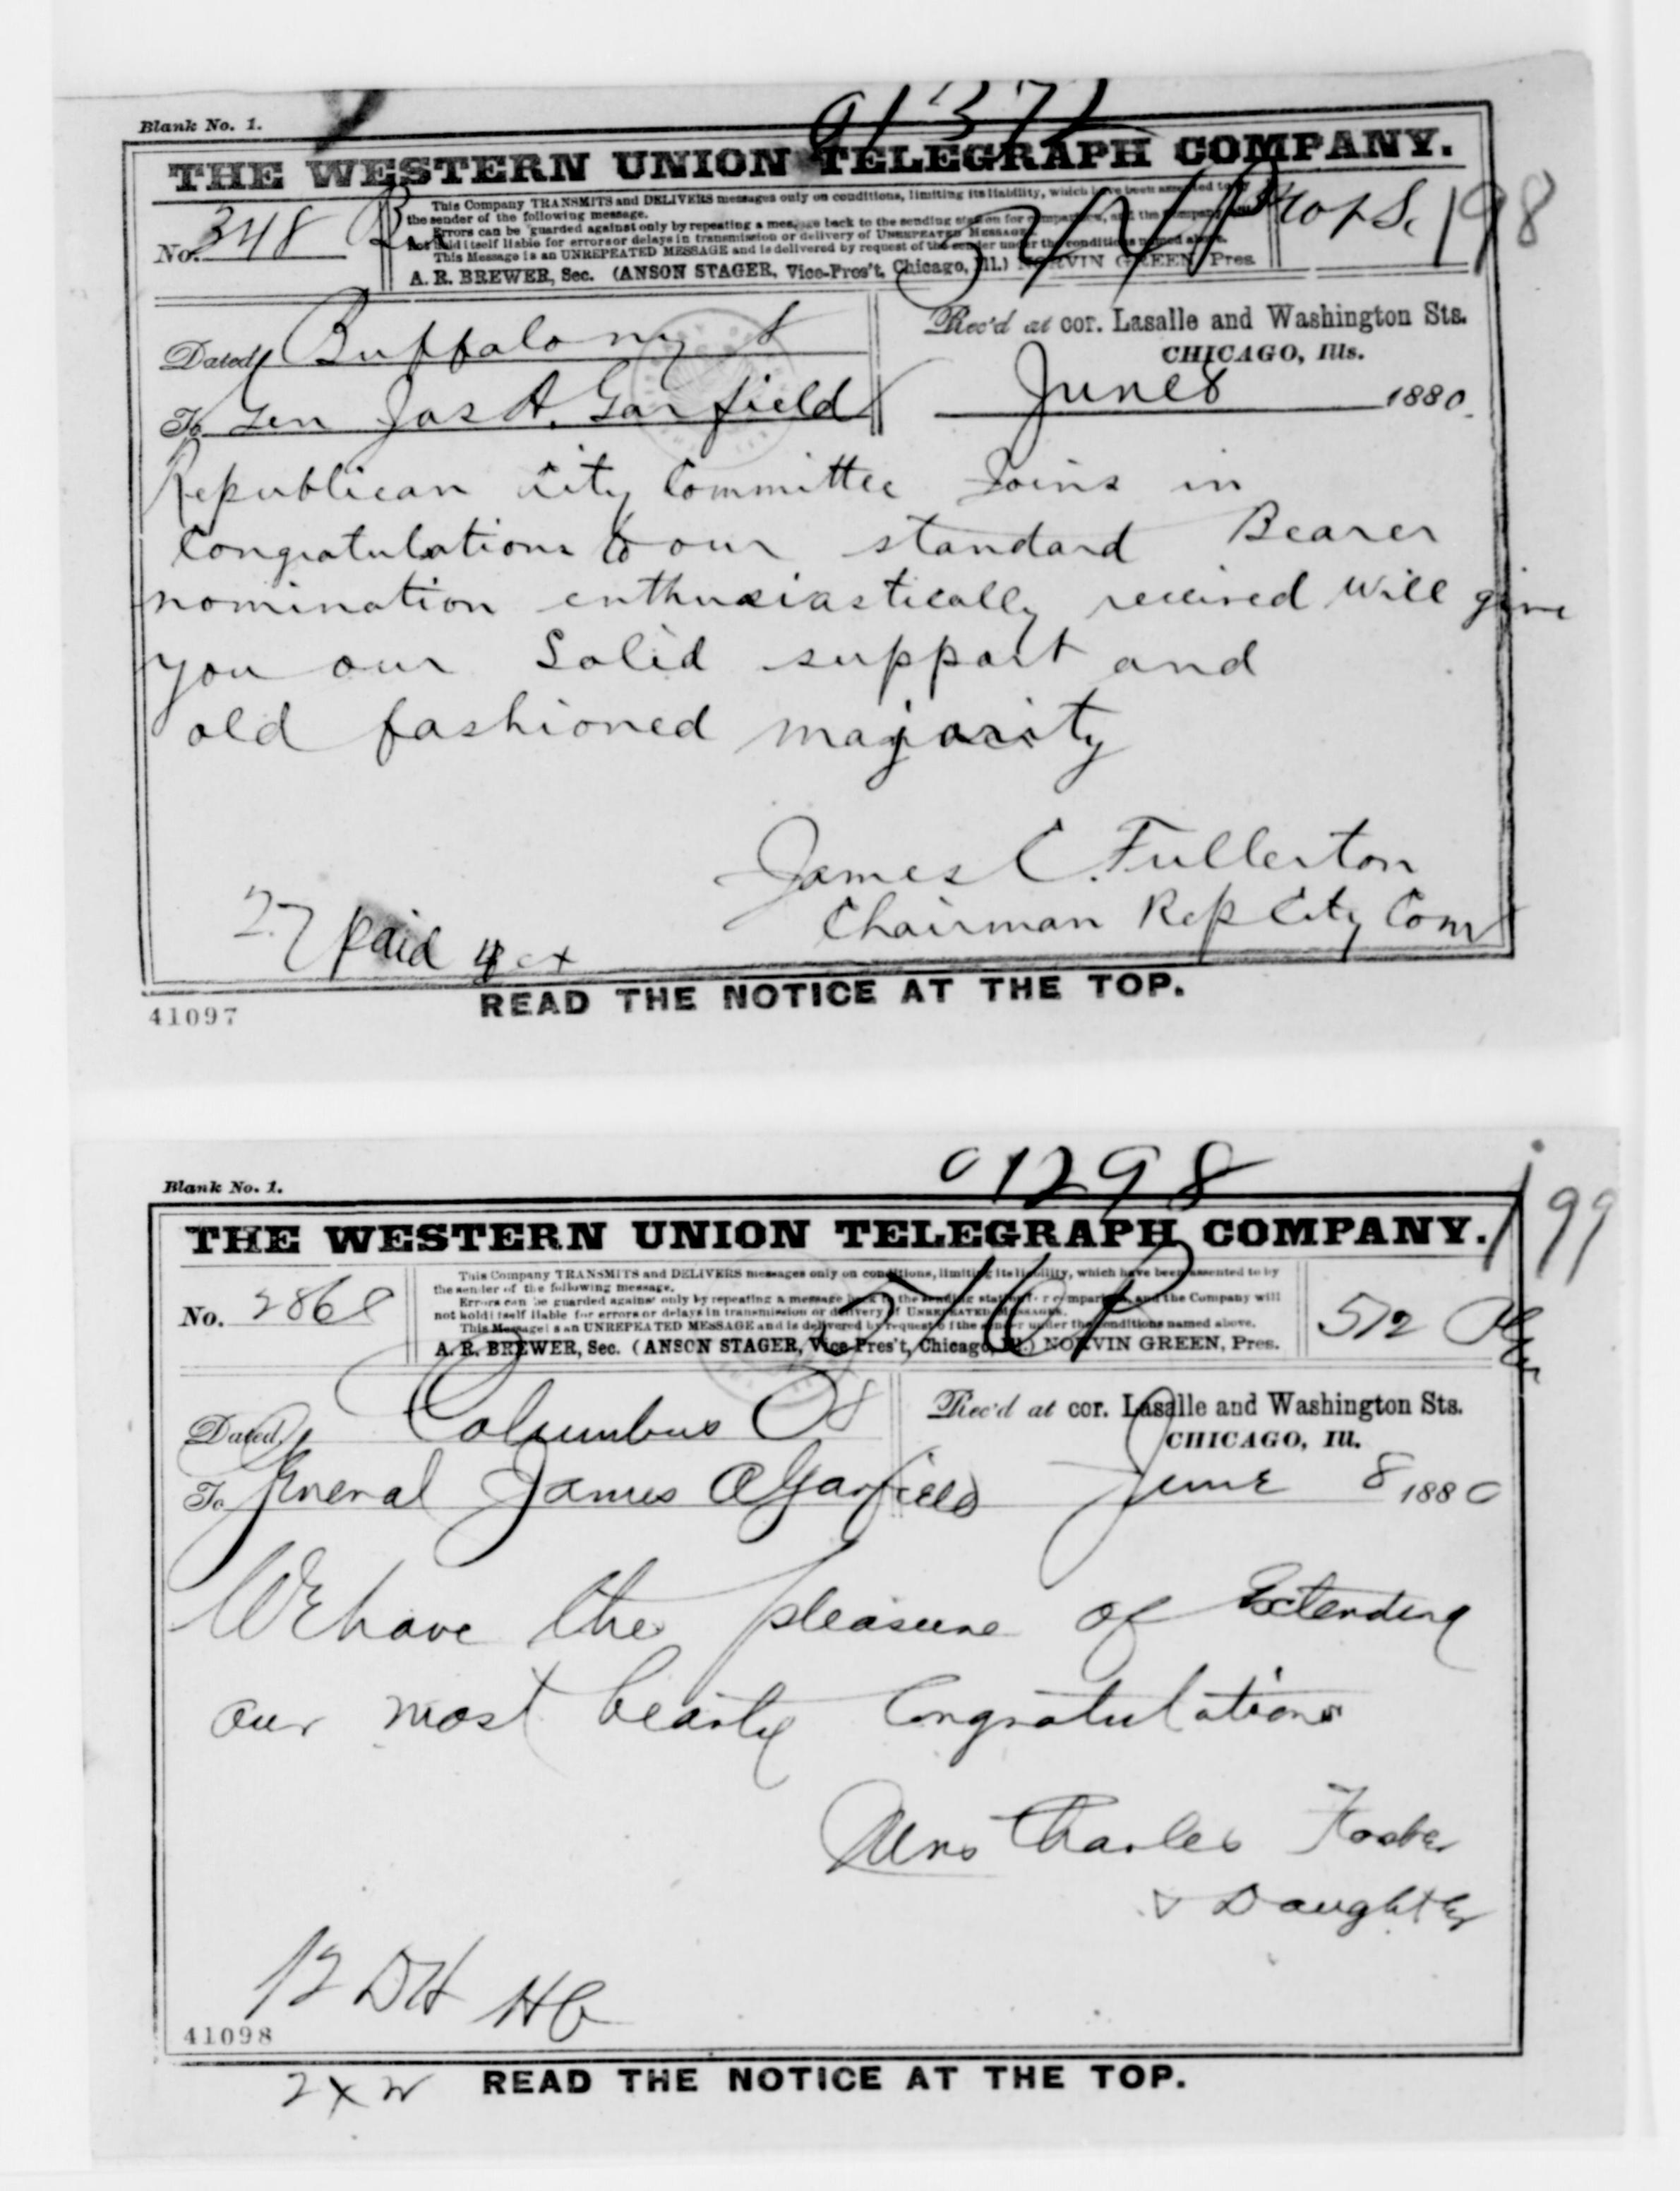 Blank No. 1.
THE WESTERN UNION TELEGRAPH COMPANY.
198
No. 348
This Company TRANSMITS and DELIVERS messages only on conditions, limiting its liability, which have been assented to by
the sender of the following message.
Errors can be guarded against only by repeating a message back to the sending station for comparison, and the Company will
not hold itself liable for errors or delays in transmission or delivery of UNREPEATED MESSAGES.
This Message is an UNREPEATED MESSAGE and is delivered by request of the sender under the conditions named above.
A. R. BREWER, Sec. (ANSON STAGER, Vice-Pres't, Chicago, Ill.) NORVIN GREEN, Pres.
Dated Buffalo ny 8
Rec'd at cor. Lasalle and Washington Sts.
CHICAGO, Ills.
To Gen Jas A. Garfield
June 8 1880.
Republican City Committee Joins in
Congratulations to our standard Bearer
nomination enthusiastically received will give
you our Solid support and
old fashioned majority
James C. Fullerton
Chairman Rep City Com
27 paid
READ THE NOTICE AT THE TOP.
41097
01298
Blank No. 1.
199
THE WESTERN UNION TELEGRAPH COMPANY.
No. 2868
This Company TRANSMITS and DELIVERS messages only on conditions, limiting its liability, which have been assented to by
the sender of the following message.
Errors can be guarded against only by repeating a message back to the sending station for comparison, and the Company will
not hold itself liable for errors or delays in transmission or delivery of UNREPEATED MESSAGES.
This Message is an UNREPEATED MESSAGE and is delivered by request of the sender under the conditions named above.
A. R. BREWER, Sec. (ANSON STAGER, Vice-Pres't, Chicago, Ill.) NORVIN GREEN, Pres.
512
Dated, Columbus O 8
Rec'd at cor. Lasalle and Washington Sts.
CHICAGO, Ill.
To General James A Garfield
June 8 1880
We have the pleasure of Extending
our most hearty Congratulations
Mrs Charles Foster
& Daughter
12 DH
41098
READ THE NOTICE AT THE TOP.